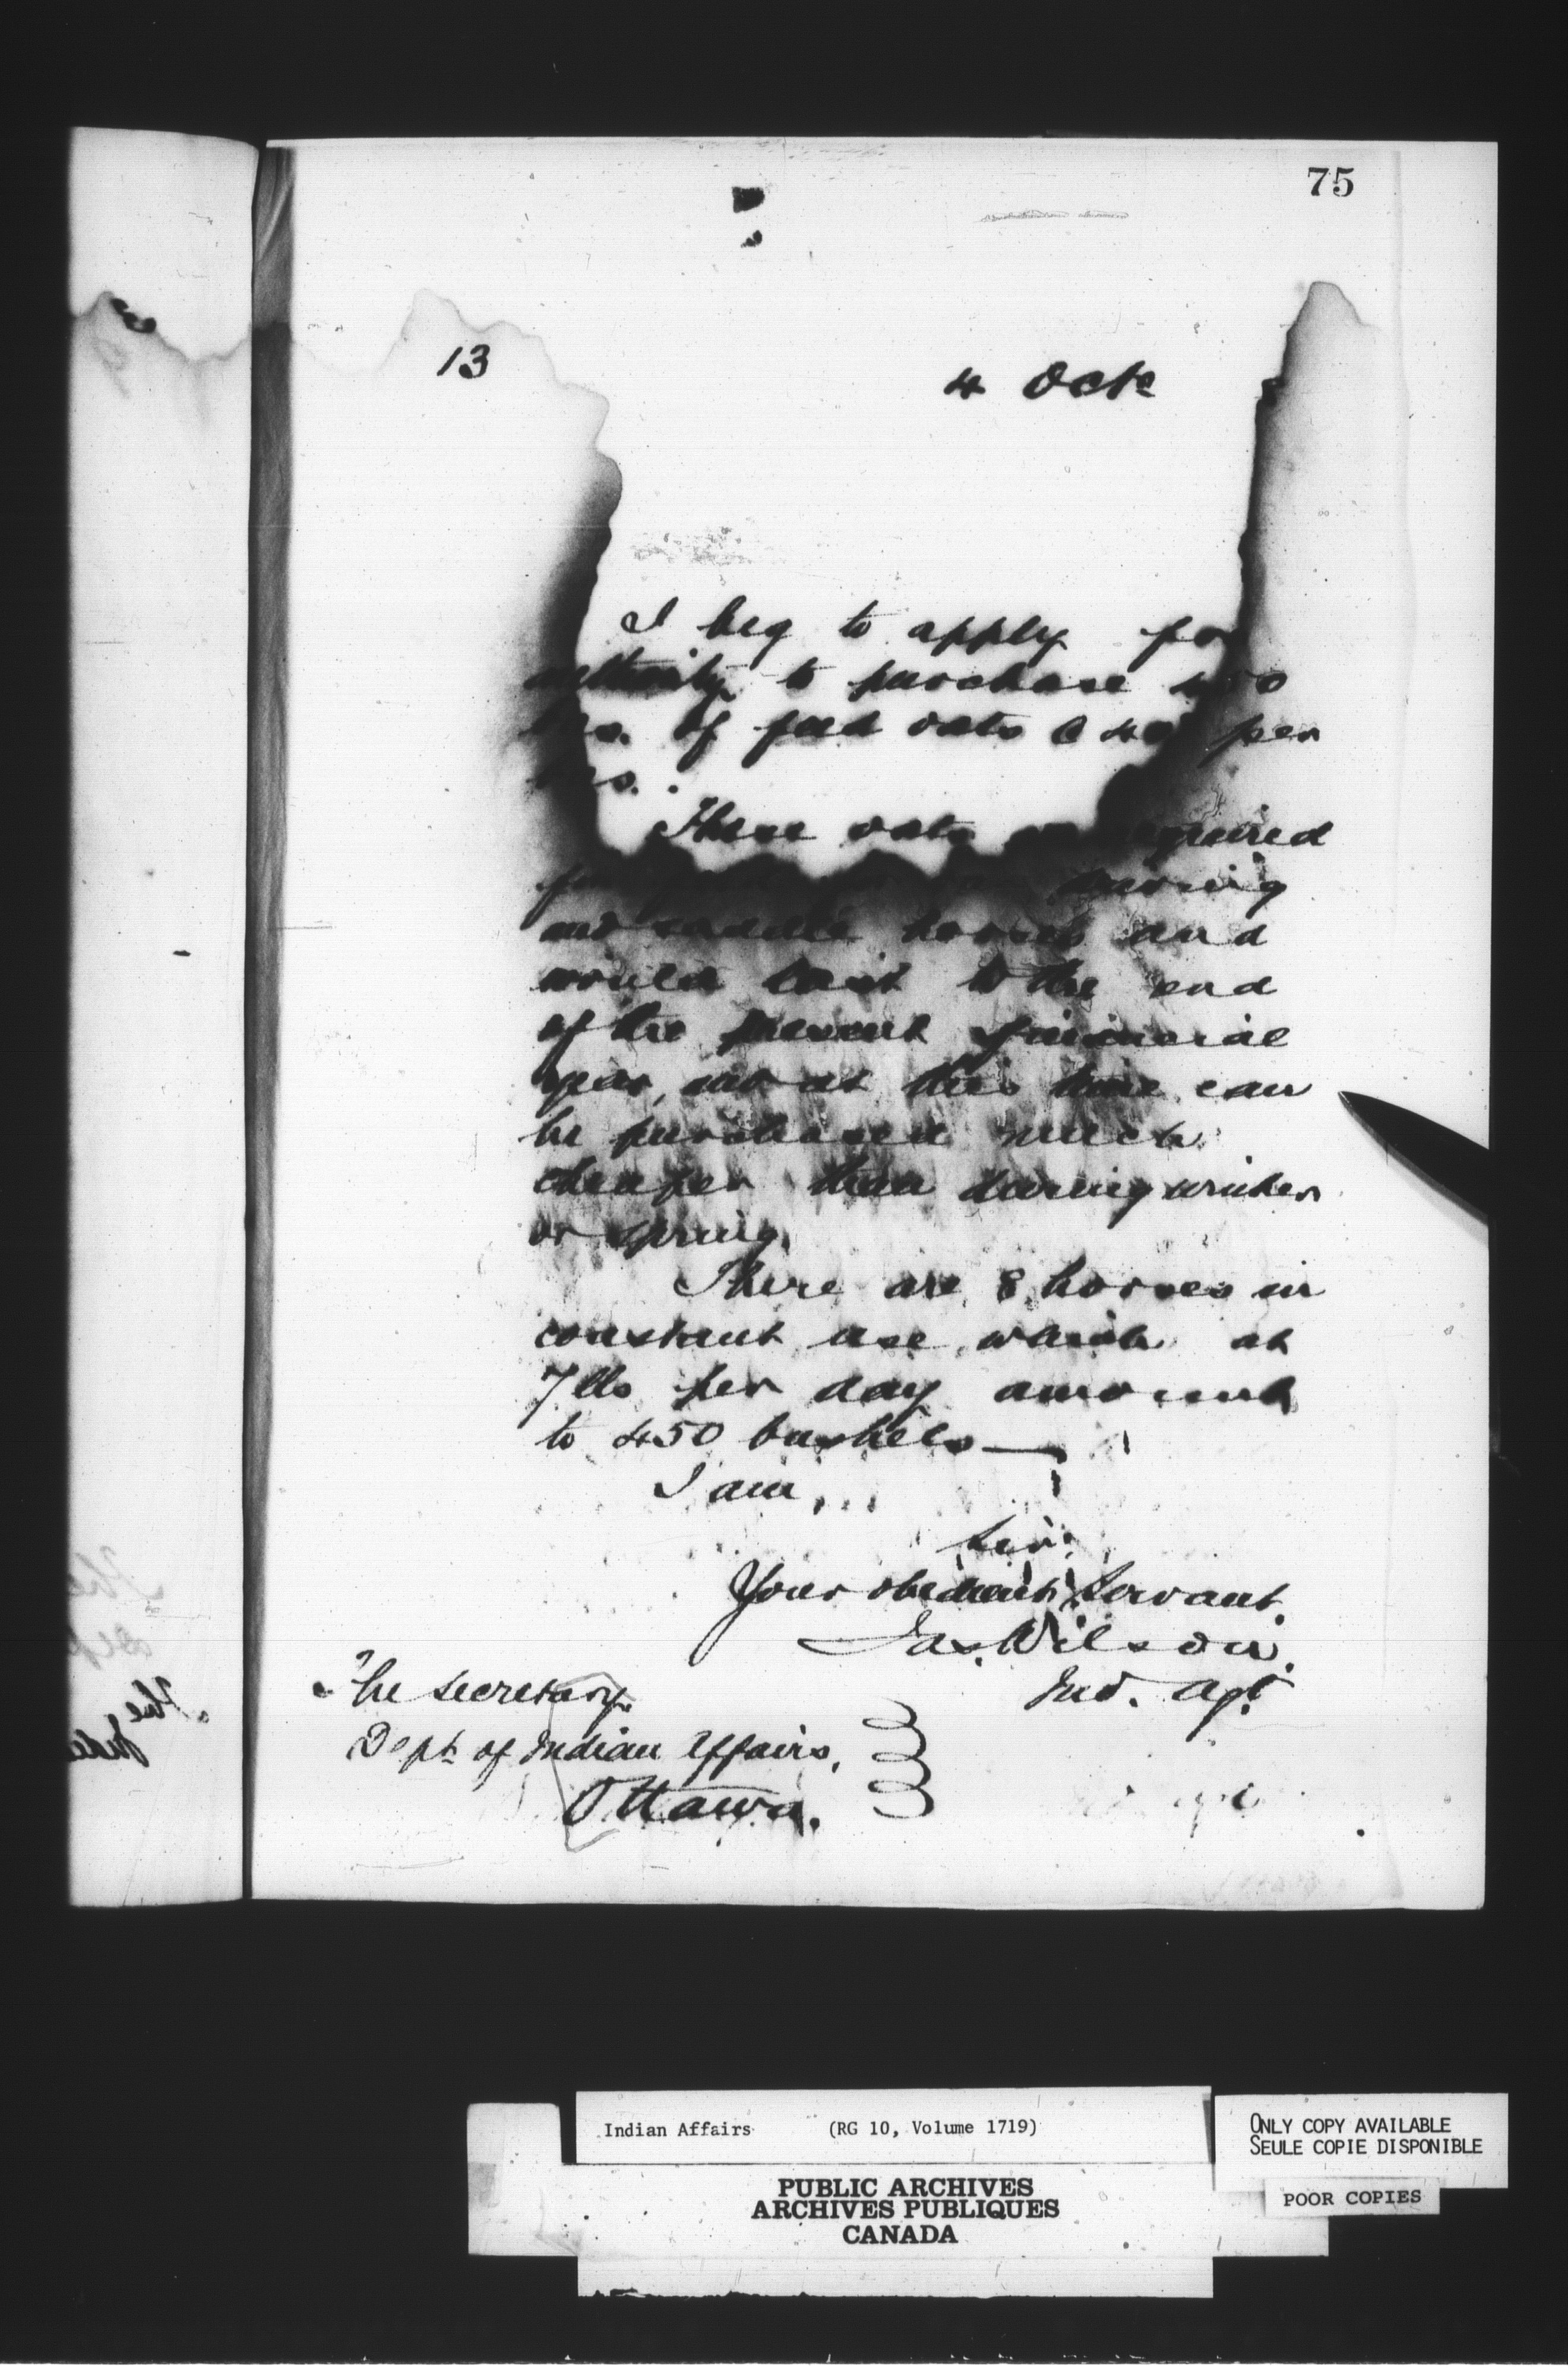 75
13
4 Octr
I beg to apply for
authority to purchase 450
of feed oats @ 40 per
These oats required
driving
and saddle horses and
would last to the end
of the present financial
year, and at this time can
be purchased much
cheaper than during winter
or spring.
There are 8 horses in
constant use, which at
7 lbs per day amount
to 450 bushels —
I am,
Sir,
Your obedient Servant.
Jas. Wilson.
Ind. Agt
The Secretary
Dept. of Indian Affairs,
Ottawa.
Indian Affairs (RG 10, Volume 1719)
PUBLIC ARCHIVES
ARCHIVES PUBLIQUES
CANADA
ONLY COPY AVAILABLE
SEULE COPIE DISPONIBLE
POOR COPIES